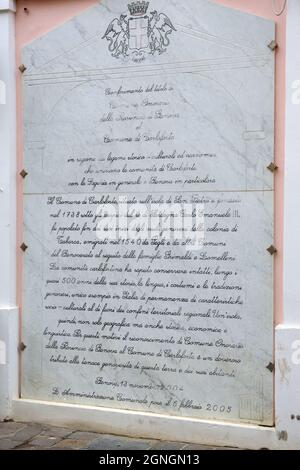 Conferimento del titolo di
Comune Onorario
della Provincia di Genova
al
Comune di Carloforte
in ragione dei legami storico - culturali ed economici
che uniscono la comunità di Carloforte
con la Liguria in generale e Genova in particolare
Il Comune di Carloforte, sull'isola di San Pietro,
nel 1738 sotto Carlo Emanuele III,
fu popolato
Tabarca, emigrati nel 1540 da Pegli e da altri Comuni
del Genovesato al seguito delle famiglie Grimaldi e Lomellini
La comunità carlofortina ha saputo conservare intatte, lungo i
quasi 500 anni della sua storia, la lingua, i costumi e le tradizioni
genovesi, unico esempio in Italia di permanenza di caratteristiche
socio - culturali al di fuori dei confini territoriali regionali. Un'isola,
quindi, non solo geografica ma anche storica, economica e
linguistica. Per questi motivi il riconoscimento di Comune Onorario
della Provincia di Genova al Comune di Carloforte è un doveroso
tributo alla tenace genovesità di questa terra e dei suoi abitanti.
Genova, 13 novembre 2004
L'Amministrazione Comunale pose il 5 febbraio 2005
alamy
Image ID: 2GNGN13
www.alamy.com